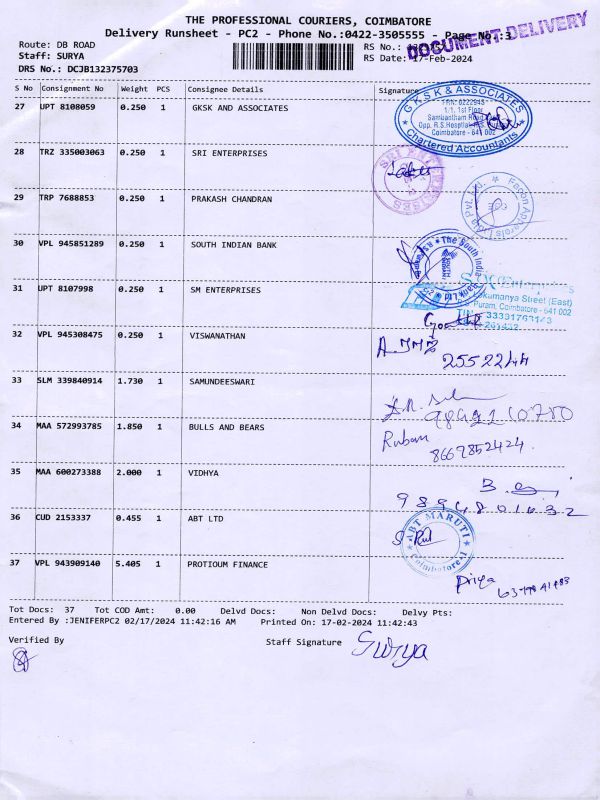 THE PROFESSIONAL COURIERS, COIMBATORE
Delivery Runsheet - PC2 - Phone No.:0422-3505555 - Page No.:3
DOCUMENT DELIVERY
Route: DB ROAD
RS No.:
Staff: SURYA
RS Date: 17-Feb-2024
DRS No.: DCJB132375703
S No Consignment No Weight PCS Consignee Details Signature
27 UPT 8108059 0.250 1 GKSK AND ASSOCIATES
GKSK & ASSOCIATES
1/1, 1st Floor
Coimbatore - 641 002
Chartered Accountants
28 TRZ 335003063 0.250 1 SRI ENTERPRISES
SRI ENTERPRISES
29 TRP 7688853 0.250 1 PRAKASH CHANDRAN
30 VPL 945851289 0.250 1 SOUTH INDIAN BANK
The South Indian Bank Ltd
31 UPT 8107998 0.250 1 SM ENTERPRISES
Street (East)
Puram, Coimbatore - 641 002
32 VPL 945308475 0.250 1 VISWANATHAN
2552244
33 SLM 339840914 1.730 1 SAMUNDEESWARI
34 MAA 572993785 1.850 1 BULLS AND BEARS
Ruban
8667852424
35 MAA 600273388 2.000 1 VIDHYA
9894801632
36 CUD 2153337 0.455 1 ABT LTD
ABT MARUTI
Coimbatore-1
37 VPL 943909140 5.405 1 PROTIOUM FINANCE
Priya
Tot Docs: 37 Tot COD Amt: 0.00 Delvd Docs: Non Delvd Docs: Delvy Pts:
Entered By :JENIFERPC2 02/17/2024 11:42:16 AM Printed On: 17-02-2024 11:42:43
Verified By
Staff Signature Surya